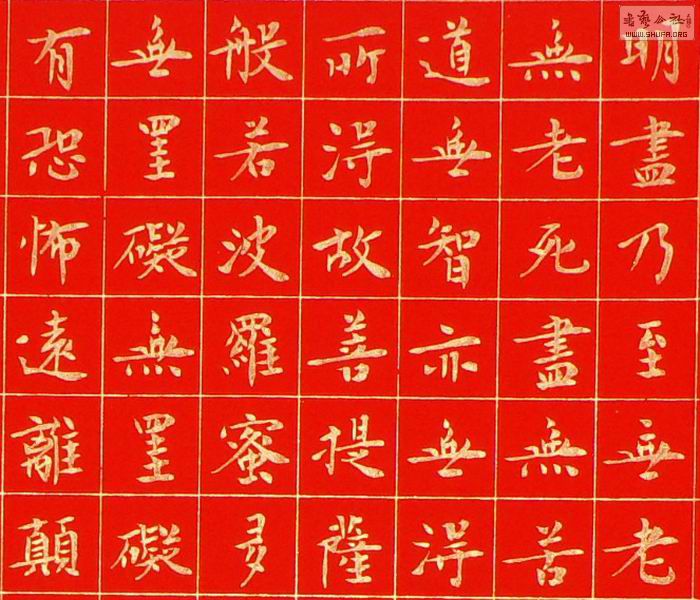 明盡乃至無老
無老死盡無苦
道無智亦無得
所得故菩提薩
般若波羅蜜多
無罣礙無罣礙
有恐怖遠離顛
書藝公社
WWW.SHUFA.ORG